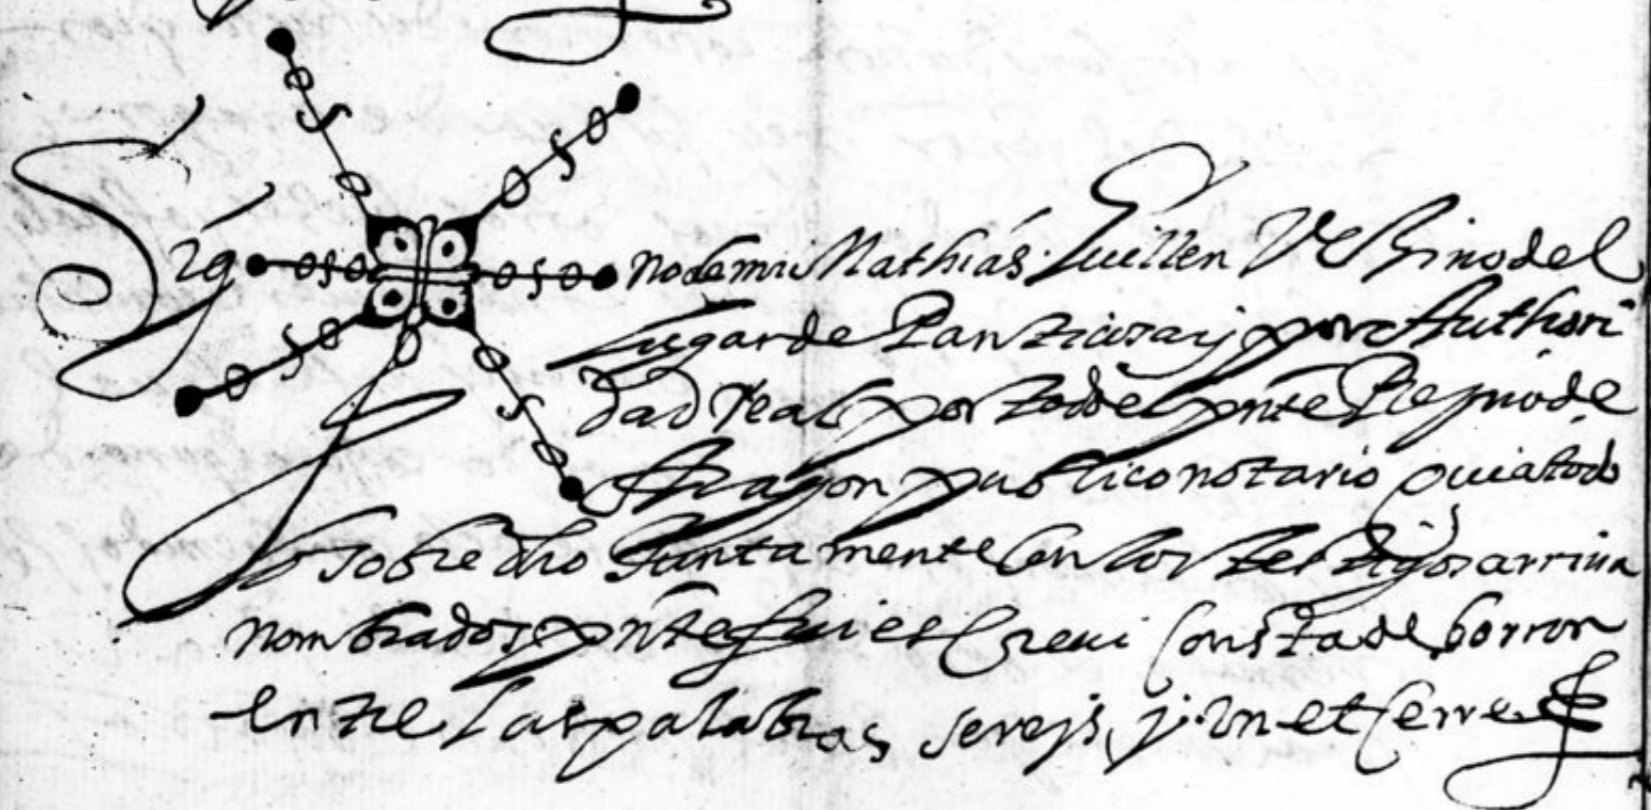 Sig no de mi Mathias Guillen Vezino del
lugar de Panticosa y por Authori
dad Real por todo el pnte Reyno de
Aragon publico notario qui a todo
lo sobre dho Junta mente con los testigos arriua
nombrados pnte fui et screui Consta de borron
entre las palabras sereis, y un et cerre